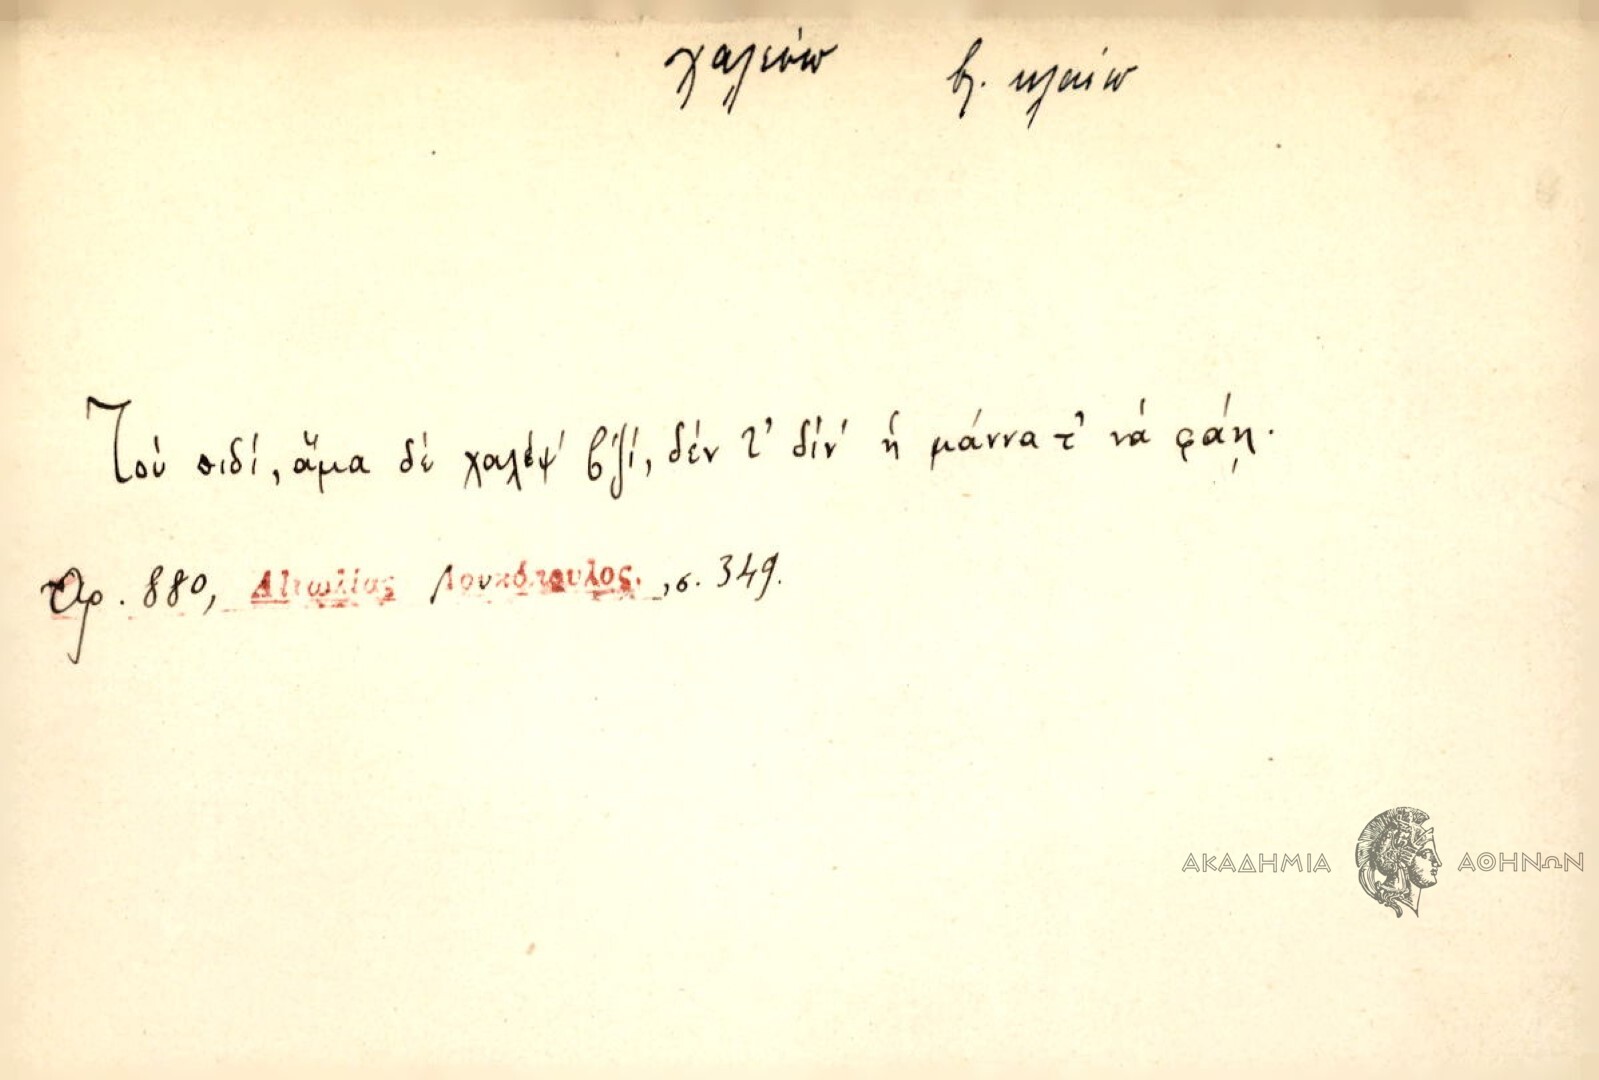 χαλεύω βλ. κλαίω
Τοὺ πιδί, ἅμα δὲ χαλέψ' β'ζί, δὲν τ' δίν' ἡ μάννα τ' νὰ φάῃ.
Ἀρ. 880, Αἰτωλίας Λουκόπουλος, σ. 349.
ΑΚΑΔΗΜΙΑ ΑΘΗΝΩΝ